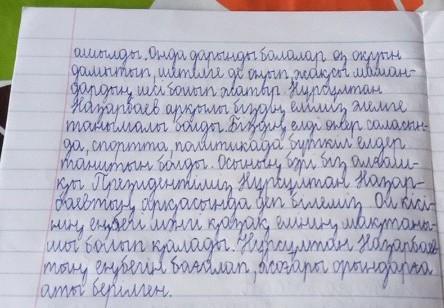 ашылды. Онда дарынды балалар өз оқуын
дамытып, шетелге де оқып, жақсы маман-
дардың иесі болып жатыр. Нұрсұлтан
Назарбаев арқылы біздің еліміз әлемге
танымалы болды. Біздің елді өнер саласын-
да, спортта, политикада бүткіл елдер
танитын болды. Осының бәрі біз алғаш-
қы Президентіміз Нұрсұлтан Назар-
баевтың арқасында деп білеміз. Ол кісі-
нің еңбегі мәңгі қазақ елінің мақтаны-
шы болып қалады. Нұрсұлтан Назарбаев-
тың еңбегін бағалап, жоғары орындарға
аты берілген.